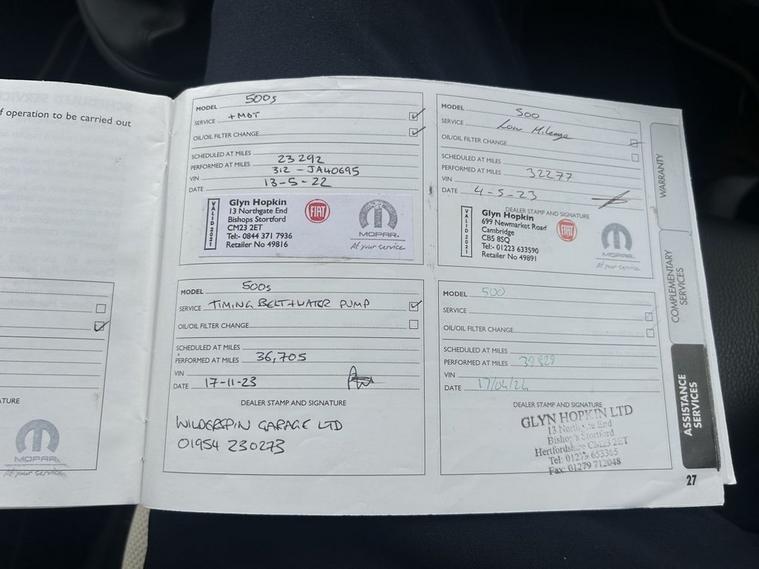 f operation to be carried out
TURE
MOPAR.
At your service
MODEL 500s
SERVICE + MOT
OIL/OIL FILTER CHANGE
SCHEDULED AT MILES
PERFORMED AT MILES 23292
VIN 312 - JA40695
DATE 13-5-22
VALID 2021
Glyn Hopkin
13 Northgate End
Bishops Stortford
CM23 2ET
Tel:- 0844 371 7936
Retailer No 49816
FIAT
MOPAR.
At your service
MODEL 500
SERVICE Low Mileage
OIL/OIL FILTER CHANGE
SCHEDULED AT MILES
PERFORMED AT MILES 32277
VIN
DATE 4-5-23
DEALER STAMP AND SIGNATURE
VALID 2021
Glyn Hopkin
699 Newmarket Road
Cambridge
CB5 8SQ
Tel:- 01223 633590
Retailer No 49891
FIAT
MOPAR.
At your service
MODEL 500s
SERVICE TIMING BELT + WATER PUMP
OIL/OIL FILTER CHANGE
SCHEDULED AT MILES
PERFORMED AT MILES 36,705
VIN
DATE 17-11-23
DEALER STAMP AND SIGNATURE
WILDERSPIN GARAGE LTD
01954 230273
MODEL 500
SERVICE
OIL/OIL FILTER CHANGE
SCHEDULED AT MILES
PERFORMED AT MILES
VIN
DATE 17/04/24
DEALER STAMP AND SIGNATURE
GLYN HOPKIN LTD
13 Northgate End
Bishop's Stortford
Hertfordshire CM23 2ET
Tel: 01279 653365
Fax: 01279 712048
WARRANTY
COMPLEMENTARY
SERVICES
ASSISTANCE
SERVICES
27